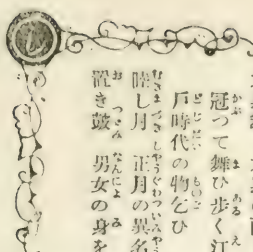 冠つて舞ひ歩く江
戸時代の物乞ひ
睦し月　正月の異名
置き鼓　男女の身を